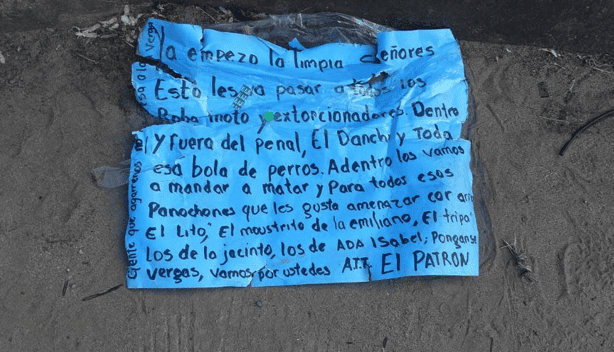 Ya empezo la limpia señores
Esto les va pasar a todos los
Roba moto y extorcionadores. Dentro
y fuera del penal, El Danchi y Toda
esa bola de perros. Adentro los vamos
a mandar a matar y Para todos esos
Panochones que les gusta amenazar con
El Lito, El maustrito de la emiliano, El tripa
Los de la jacinto, los de ADA Isabel; Ponganse
vergas, vamos por ustedes A.T.T. El PATRON
Gente que agarremos
a la Verga